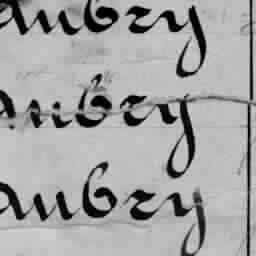 aubry
aubry
aubry